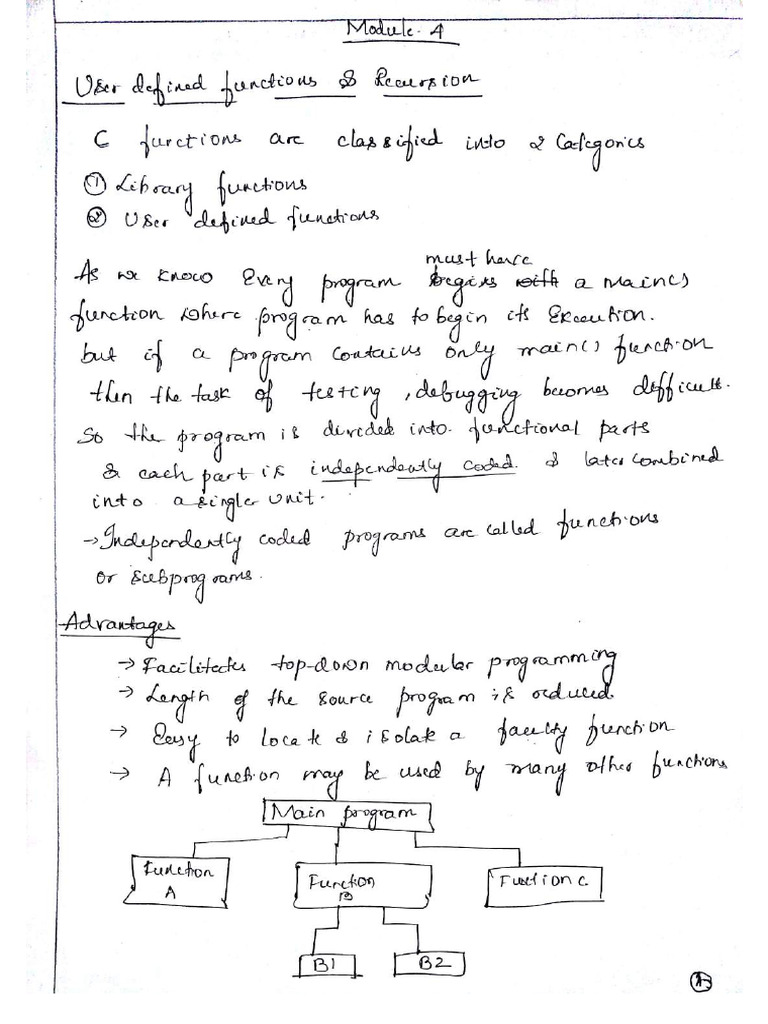 Module-4
User defined functions & Recursion
C functions are classified into 2 Categories
① Library functions
② User defined functions
must have
As we know Every program begins with a main()
function where program has to begin its Execution.
but if a program contains only main() function
then the task of testing, debugging becomes difficult.
So the program is divided into functional parts
& each part is independently coded. & later combined
into a single unit.
→ Independently coded programs are called functions
or subprograms.
Advantages
→ Facilitates top-down modular programming
→ Length of the source program is reduced
→ Easy to locate & isolate a faulty function
→ A function may be used by many other functions
Main program
Function A
Function B
Function C
B1
B2